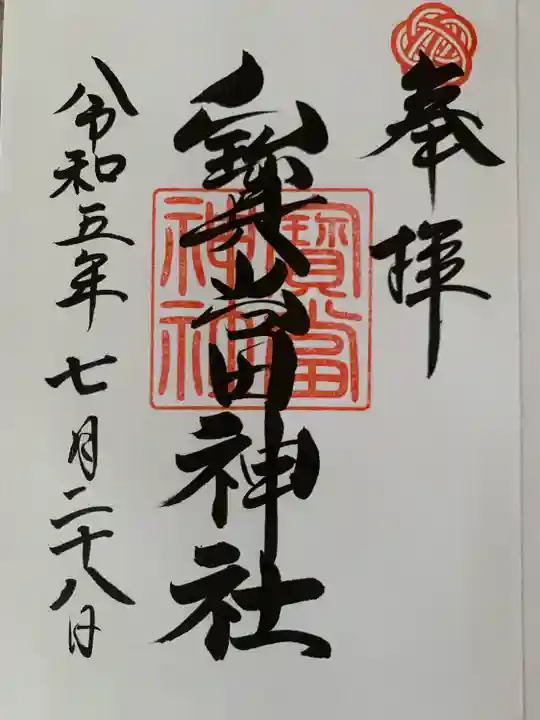 奉拝
寶當神社
令和五年七月二十八日
寶當
神社